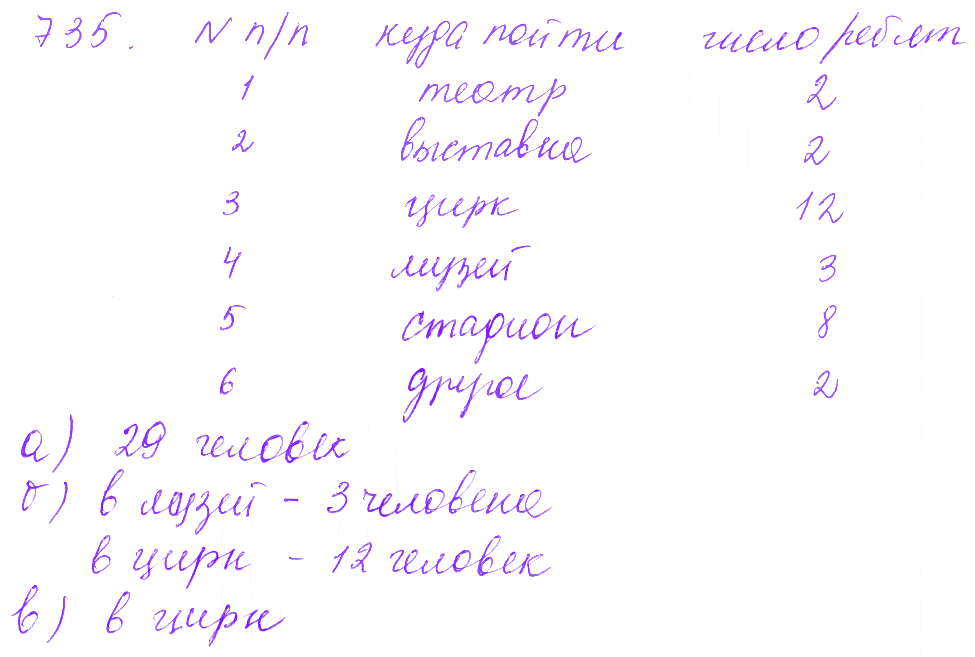 735. N п/п куда пойти число ребят
1 театр 2
2 выставка 2
3 цирк 12
4 музей 3
5 стадион 8
6 другое 2
а) 29 человек
б) в музей - 3 человека
в цирк - 12 человек
в) в цирк